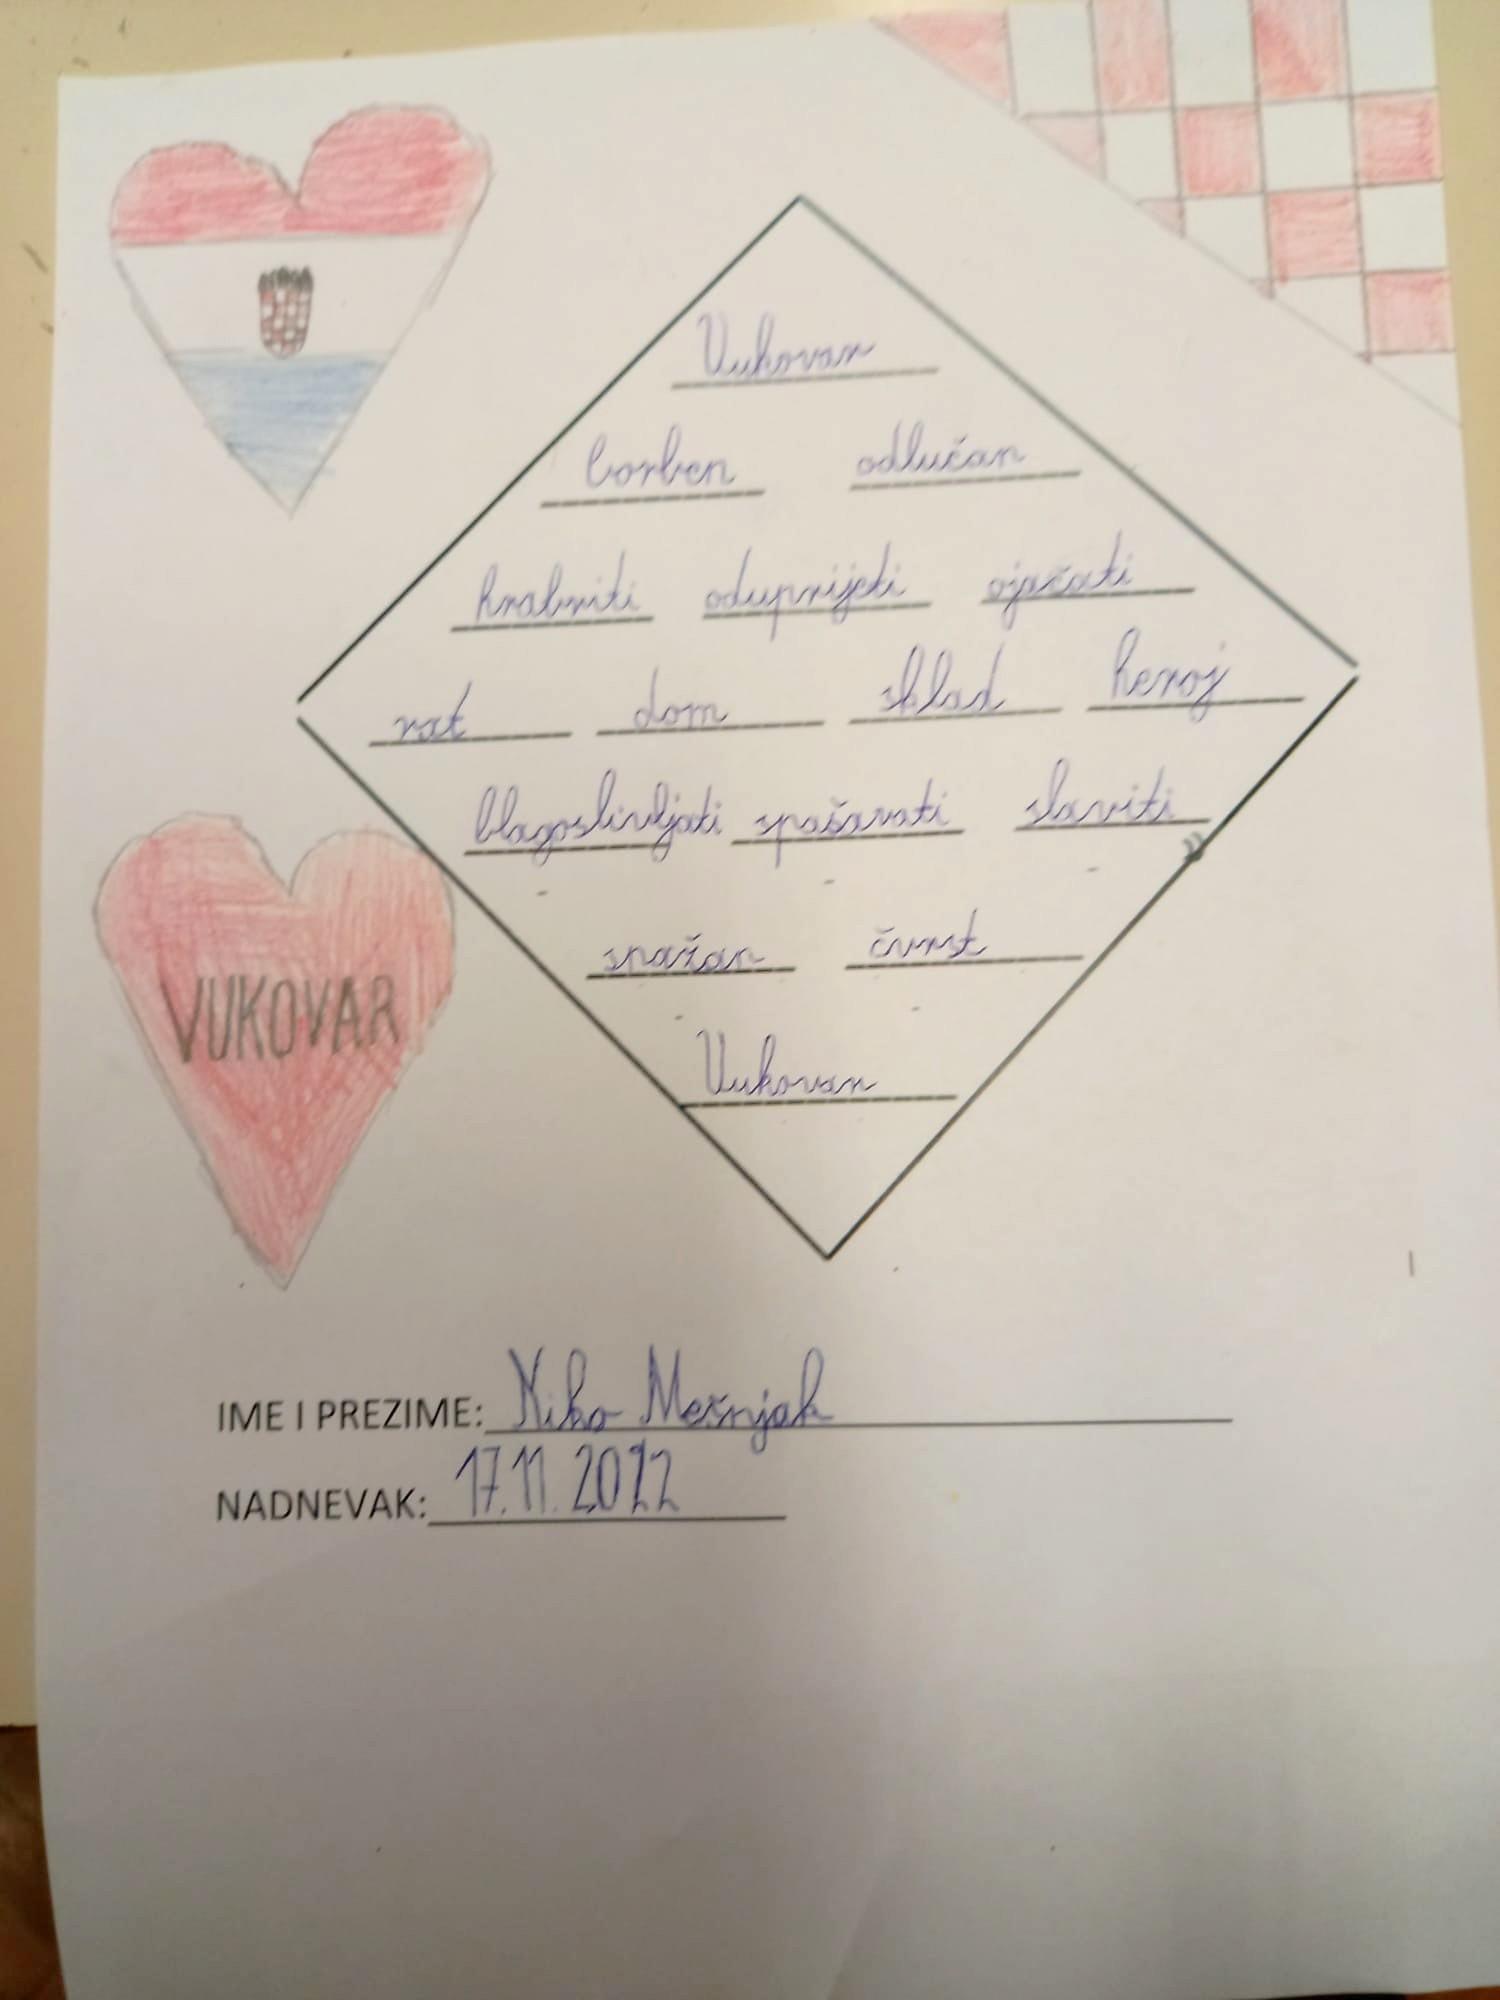 Vukovar
borben odlučan
hrabriti oduprijeti ojačati
rat dom sklad heroj
blagoslivljati spašavati slaviti
snažan čvrst
VUKOVAR
Vukovar
IME I PREZIME: Niko Mešnjak
NADNEVAK: 17.11.2022